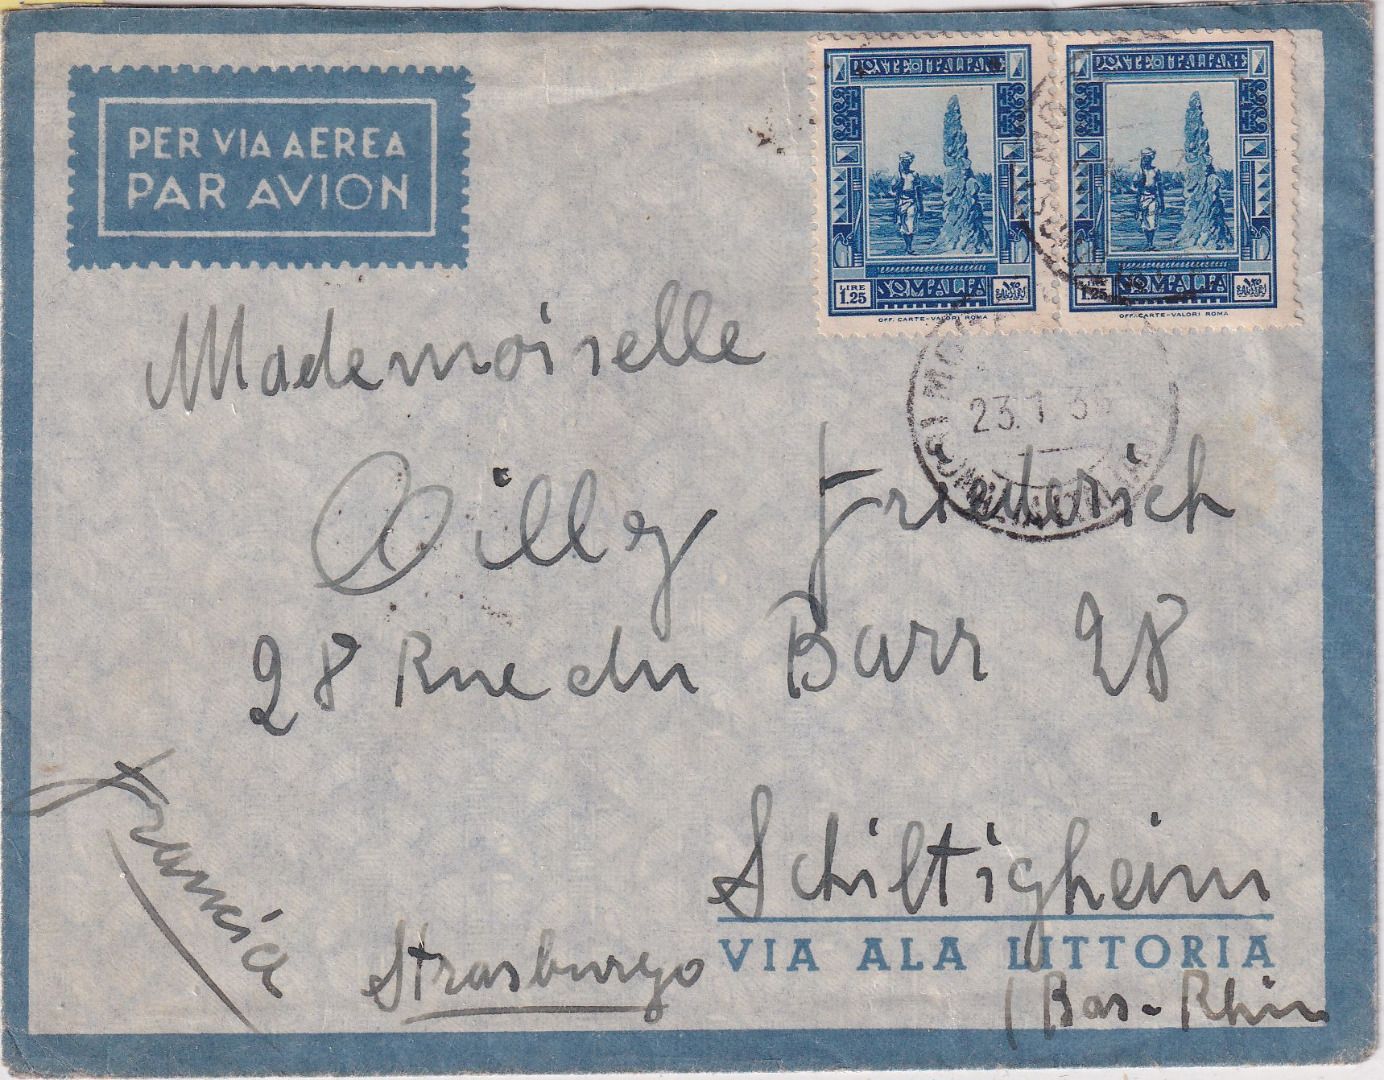 PER VIA AEREA
PAR AVION
POSTE ITALIANE
LIRE
1.25
SOMALIA
OFF. CARTE-VALORI ROMA
POSTE ITALIANE
1.25
SOMALIA
OFF. CARTE-VALORI ROMA
23.1.36
Mademoiselle
Willy Friederich
28 Rue du Barr 28
Schiltigheim
Francia
Strasburgo
VIA ALA LITTORIA
(Bas-Rhin